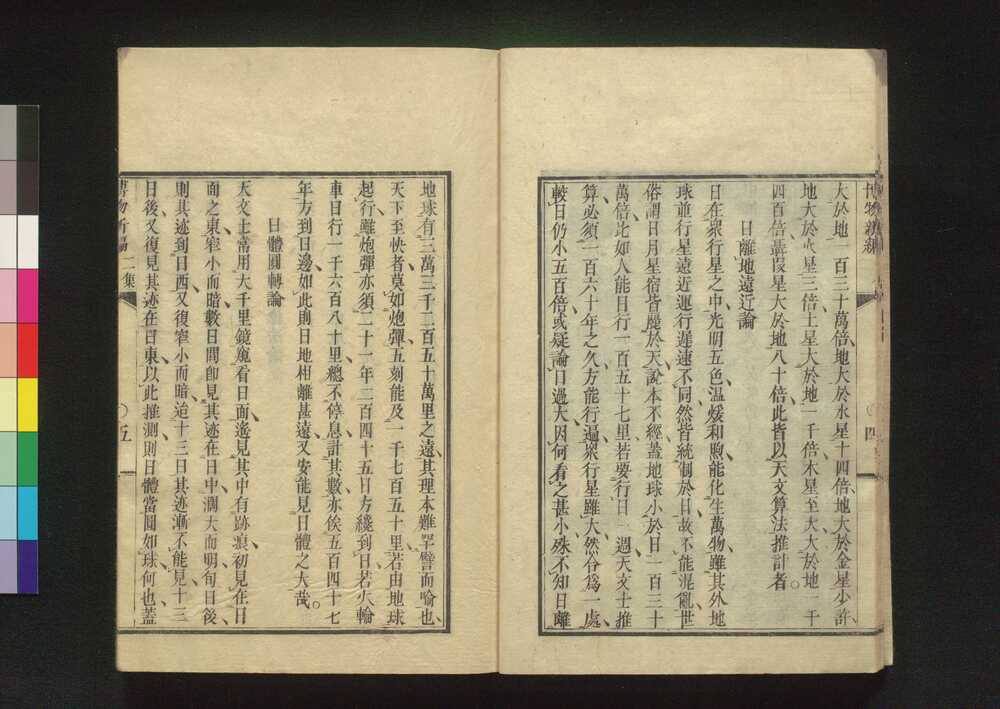 博物新編
四
大於地一百三十萬倍地大於水星十四倍地大於金星少許
地大於火星三倍土星大於地一千倍木星至大大於地一千
四百倍壽段星大於地八十倍此皆以天文算法推計者
日離地遠近論
日在衆行星之中光明五色温煖和煦能化生萬物雖其外地
球並行星遠近運行遲速不同然皆統制於日故不能混亂世
俗謂日月星宿皆麗於天說本不經蓋地球小於日一百三十
萬倍比如人能日行一百五十七里若要行日一週天文士推
算必須一百六十年之久方能行遍衆行星雖大然合爲一處
較日仍小五百倍或疑論日過大因何看之甚小殊不知日離
地球有三萬三千二百五十萬里之遠其理本難罕譬而喻也
天下至快者莫如炮彈五刻能及一千七百五十里若由地球
起行雖炮彈亦須二十一年二百四十五日方纔到日若火輪
車日行一千六百八十里總不停息計其數亦俟五百四十七
年方到日邊如此則日地相離甚遠又安能見日體之大哉
日體圓轉論
天文士常用大千里鏡窺看日面遙見其中有跡痕初見在日
面之東窄小而暗數日間卽見其迹在日中濶大而明旬日後
則其迹到日西又復窄小而暗迨十三日其迹漸不能見十三
日後又復見其迹在日東以此推測則日體當圓如球何也蓋
博物新編二集
五